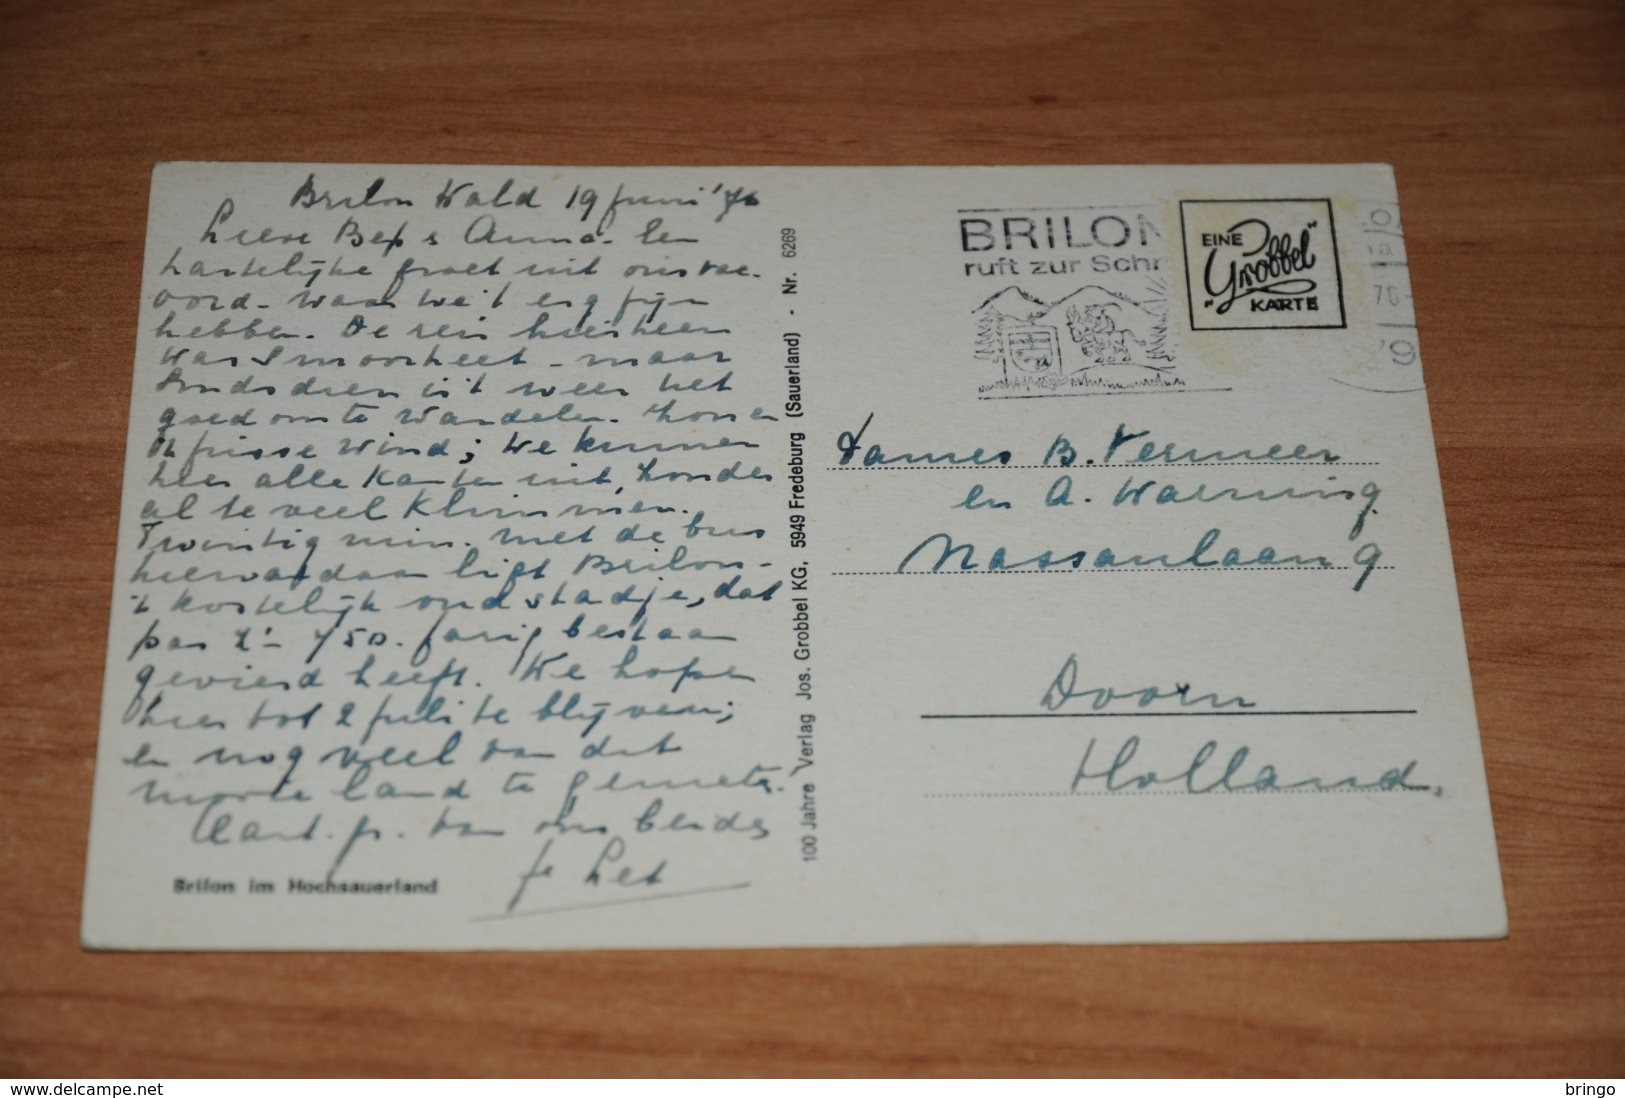 Brilon Wald 19 Juni '76
Lieve Bep & Anna. Een
hartelijke groet uit ons vac.
oord - waar we 't erg fijn
hebben. De reis hierheen
was smoorheet - maar
sindsdien is 't weer net
goed om te wandelen. Zon en
'n frisse wind; we kunnen
hier alle kanten uit, zonder
al te veel klimmen.
Twintig min. met de bus
hiervandaan ligt Brilon -
't kostelijk oud stadje, dat
pas z'n 750. jarig bestaan
gevierd heeft. We hopen
hier tot 2 juli te blijven;
en nog veel van dit
mooie land te genieten.
Hart. gr. van ons beiden
Je Let
Brilon im Hochsauerland
100 Jahre Verlag Jos. Grobbel KG, 5949 Fredeburg (Sauerland) · Nr. 6269
BRILON
ruft zur Schr
EINE
"Grobbel"
KARTE
76
Dames B. Vermeer
en A. Waerning
Nassaulaan 9
Doorn
Holland.
delcampe.net
bringo